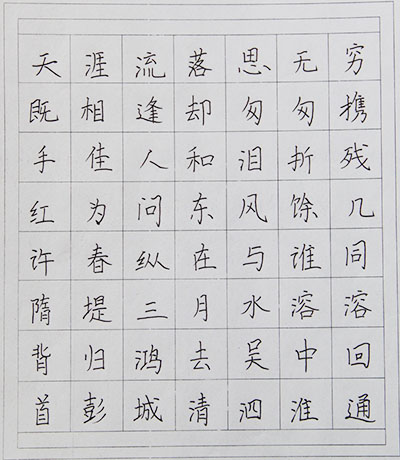 天涯流落思无穷
既相逢却匆匆携
手佳人和泪折残
红为问东风馀几
许春纵在与谁同
隋堤三月水溶溶
背归鸿去吴中回
首彭城清泗淮通